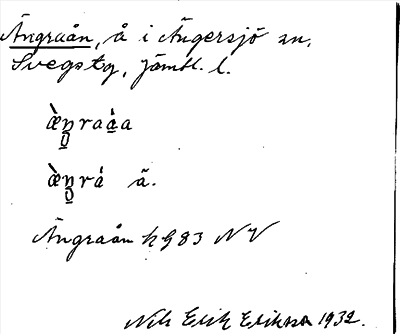 Ängraån, å i Ängersjö sn,
Svegs tg, Jämtl. l.
æ̀ŋ̲raá̲a
æ̀ŋ̲rá ā.
Ängraån k G 83 NV
Nils Erik Eriksson 1932.